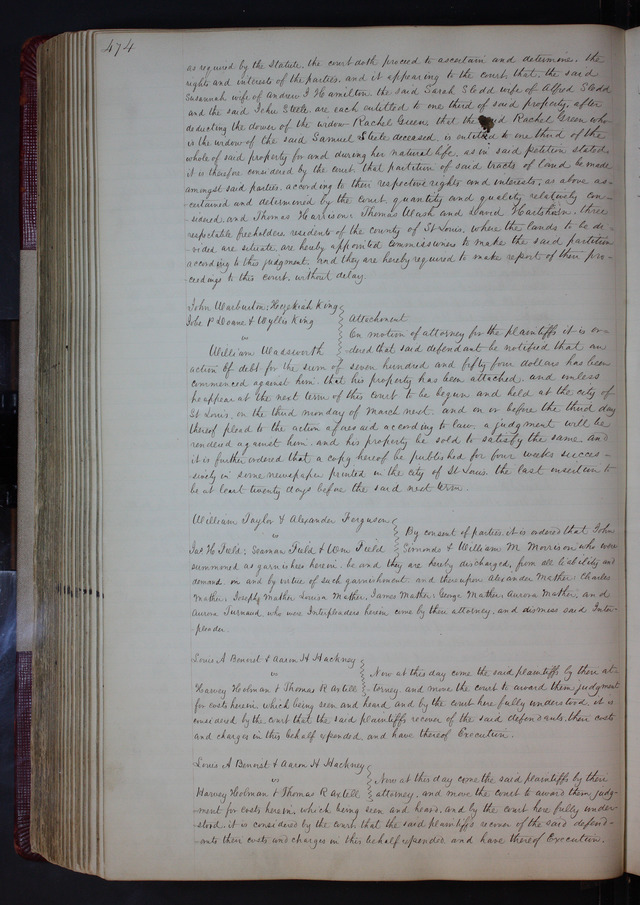 474
as required by the Statute, the court doth proceed to ascertain and determine, the
rights and interests of the parties, and it appearing to the court, that, the said
Susannah wife of Andrew J Hamilton the said Sarah Sledd wife of Alfred Sledd
and the said John Steele are each entitled to one third of said property, after
deducting the dower of the widow Rachel Green that the said Rachel Green who
is the widow of the said Samuel Steele deceased, is entitled to one third of the
whole of said property for and during her natural life, as in said petition stated,
it is therefore considered by the court that partition of said tracts of land be made
amongst said parties, according to their respective rights and interests, as above as-
certained and determined by the court, quantity and quality relatively con-
sidered, and Thomas Harrison, Thomas Wash and David Hartshorn, three
respectable freeholders residents of the county of St Louis, where the lands to be di-
vided are situate, are hereby appointed commissioners to make the said partition
according to this judgment, and they are hereby required to make report of their pro-
ceedings to this court, without delay.
John Warburton, Hezekiah King
John P Doane & Wyllis King
vs
William Wadsworth
Attachment
On motion of attorney for the plaintiffs it is or-
dered that said defendant be notified that an
action of debt for the sum of seven hundred and fifty four dollars has been
commenced against him, that his property has been attached, and unless
he appear at the next term of this court to be begun and held at the city of
St Louis, on the third monday of march next, and on or before the third day
thereof plead to the action aforesaid according to law, a judgment will be
rendered against him, and his property be sold to satisfy the same and
it is further ordered that a copy hereof be published for four weeks succes-
sively in some newspaper printed in the city of St Louis, the last insertion to
be at least twenty days before the said next term.
William Taylor & Alexander Ferguson
vs
Jas H Field, Seaman Field & Wm Field
By consent of parties it is ordered that John
Simonds & William M Morrison who were
summoned as garnishees herein, be and they are hereby discharged, from all liability and
demand, on and by virtue of such garnishment, and thereupon Alexander Mather, Charles
Mather, Joseph Mather Louisa Mather, James Mather, George Mather, Aurora Mather, and
Aurora who were Interpleaders herein come by their attorney, and dismiss said Inter-
pleader.
Louis A Benoist & Aaron H Hackney
vs
Harvey Holman & Thomas R Axtell
Now at this day come the said plaintiffs by their at-
torney, and move the court to award them judgment
for costs herein, which being seen and heard and by the court here fully understood, it is
considered by the court that the said plaintiffs recover of the said defendants, their costs
and charges in this behalf expended, and have thereof Execution.
Louis A Benoist & Aaron H Hackney
vs
Harvey Holman & Thomas R Axtell
Now at this day come the said plaintiffs by their
attorney, and move the court to award them judg-
ment for costs herein, which being seen and heard, and by the court here fully under
stood, it is considered by the court that the said plaintiffs recover of the said defend-
-ants their costs and charges in this behalf expended and have thereof Execution.